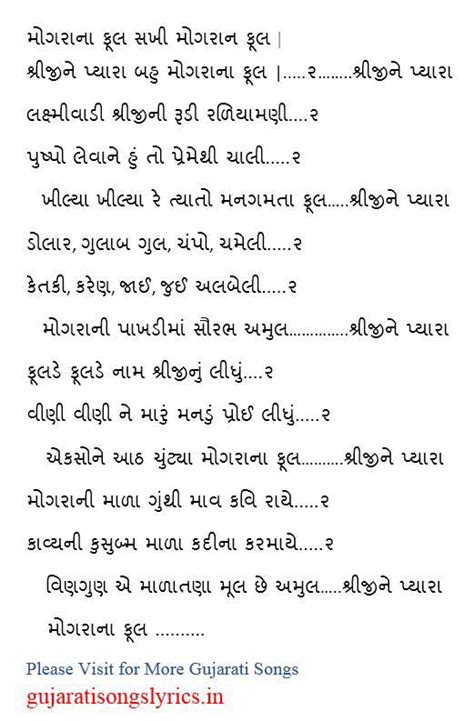 મોગરાના ફૂલ સખી મોગરાન ફૂલ |
શ્રીજીને પ્યારા બહુ મોગરાના ફૂલ |.....૨........શ્રીજીને પ્યારા
લક્ષ્મીવાડી શ્રીજીની રૂડી રળિયામણી....૨
પુષ્પો લેવાને હું તો પ્રેમેથી ચાલી.....૨
ખીલ્યા ખીલ્યા રે ત્યાતો મનગમતા ફૂલ.....શ્રીજીને પ્યારા
ડોલાર, ગુલાબ ગુલ, ચંપો, ચમેલી.....૨
કેતકી, કરેણ, જાઈ, જુઈ અલબેલી.....૨
મોગરાની પાખડીમાં સૌરભ અમુલ..............શ્રીજીને પ્યારા
ફૂલડે ફૂલડે નામ શ્રીજીનું લીધું....૨
વીણી વીણી ને મારૂં મનડું પ્રોઈ લીધું.....૨
એકસોને આઠ ચુંટ્યા મોગરાના ફૂલ..........શ્રીજીને પ્યારા
મોગરાની માળા ગુંથી માવ કવિ રાયે.....૨
કાવ્યની કુસુબ્મ માળા કદીના કરમાયે.....૨
વિણગુણ એ માળાતણા મૂલ છે અમુલ.....શ્રીજીને પ્યારા
મોગરાના ફૂલ ..........
Please Visit for More Gujarati Songs
gujaratisongslyrics.in